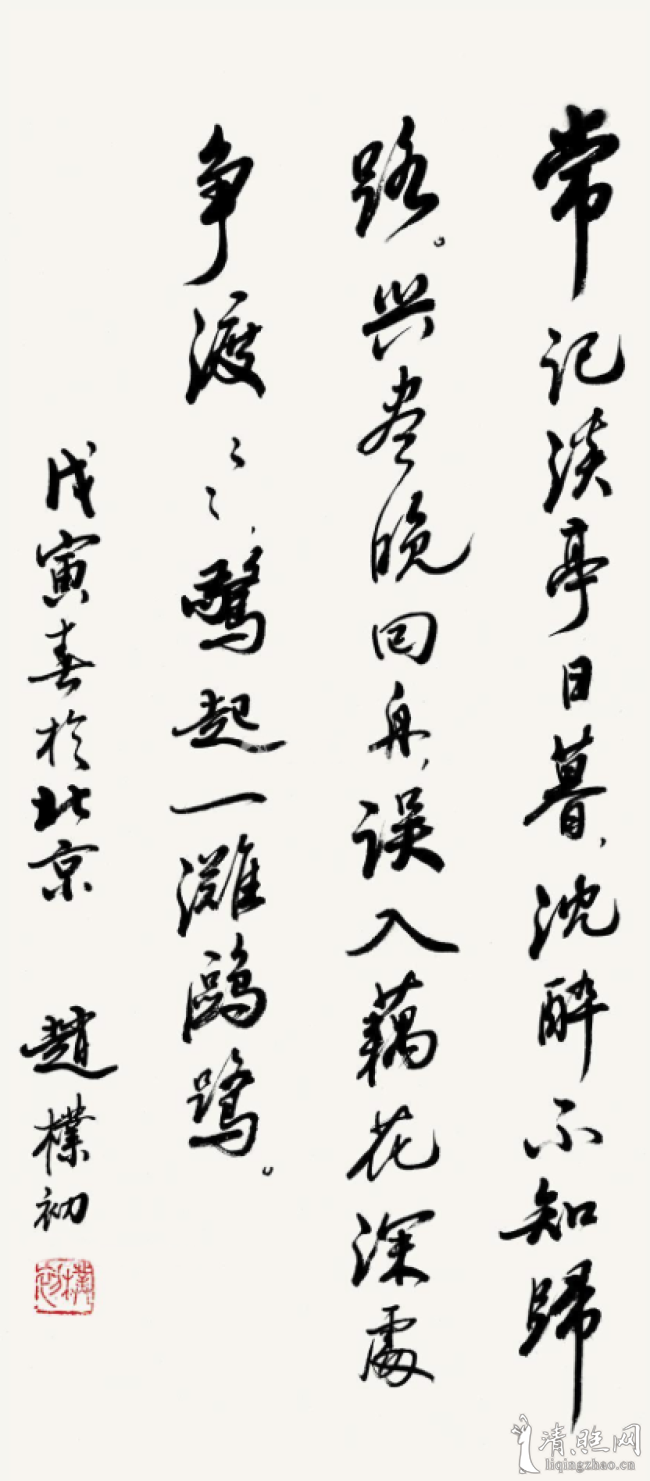 常记溪亭日暮，沈醉不知歸
路。兴尽晚回舟，误入藕花深處
争渡々々，驚起一灘鷗鷺。
戊寅春於北京 趙樸初
樸初
清照网
liqingzhao.cn